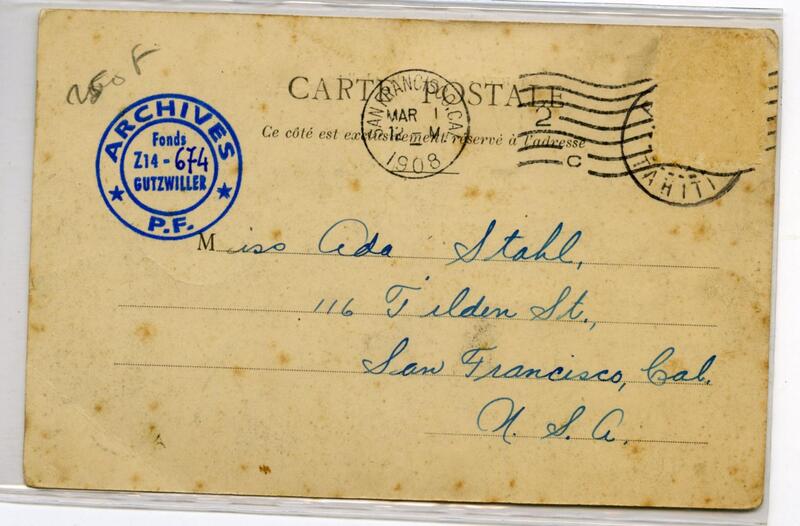 250 F
CARTE POSTALE
Ce côté est exclusivement réservé à l'adresse
SAN FRANCISCO, CAL.
MAR 1
12 - M
1908
2
C
TAHITI
ARCHIVES
Fonds
Z14 - 674
GUTZWILLER
P.F.
Miss Ada Stahl,
116 Tilden St.,
San Francisco, Cal.
U. S. A.